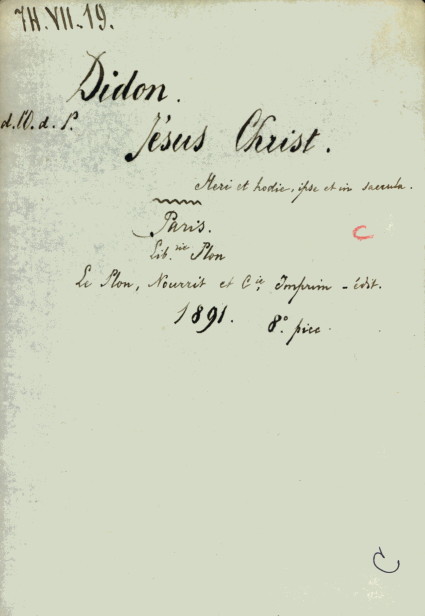 7H.VII.19.
Didon.
d. l'O. d. P.
Jésus Christ.
Heri et hodie, ipse et in saecula.
Paris.
Lib.rie Plon
Le Plon, Nourrit et Cie, Imprim - édit.
1891. 8º. picc.
C
C